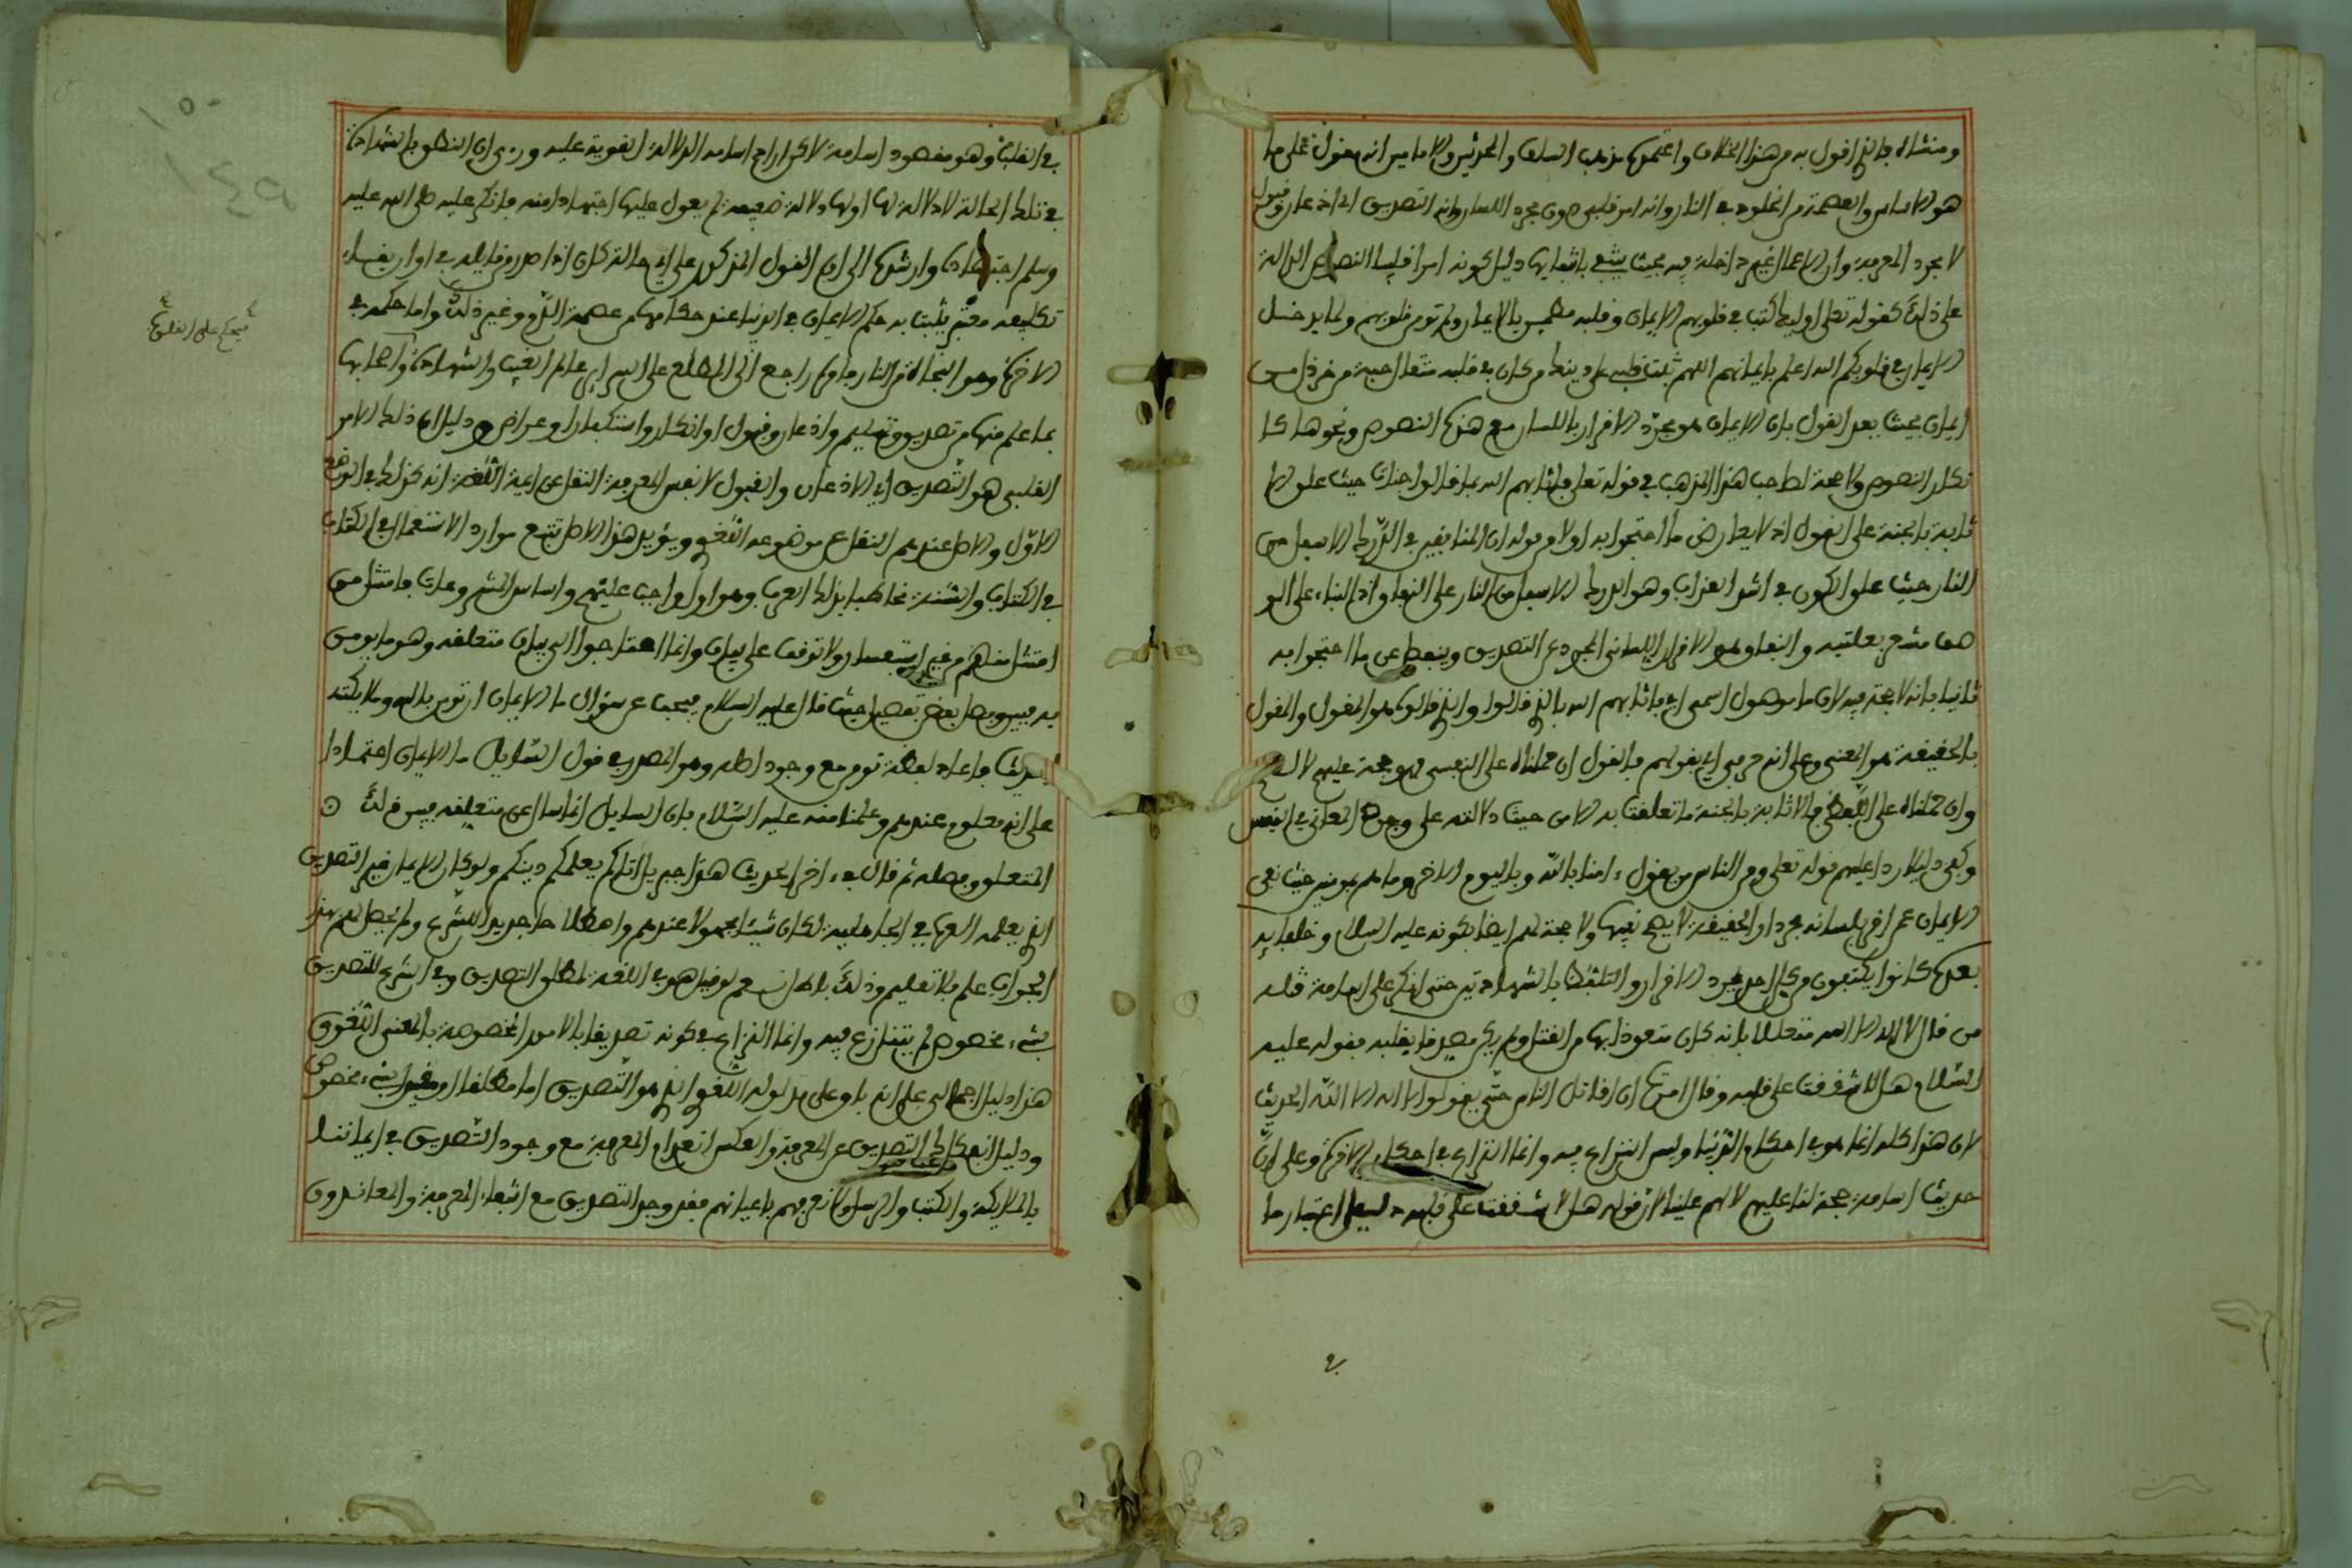 ومنشاه فالذي اقول به من هذا الخلاف واعتمده مذهب السلف والمحدثين والاماميين انه مقول على ما
هو الاساس والعصمة من الخلود في النار وانه امر قلبي دون مجرد اللسان وانه التصديق اي اذعان وقبول
لا مجرد المعرفة وان الاعمال غير داخلة فيه بحيث ينتفي بانتفايها دليل كونه امرا قلبيا النصوص الدالة
على ذلك كقوله تعلى اوليك كتب في قلوبهم الايمان وقلبه مطمين بالايمان ولم تومن قلوبهم ولما يدخل
الايمان في قلوبكم الله اعلم بايمانهم اللهم ثبت قلبي على دينك من كان في قلبه مثقال حبة من خردل من
ايمان بحيث يعد القول بان الايمان هو مجرد الاقرار باللسان مع هذه النصوص ونحوها كا
نكار النصوص ولا حجة لصاحب هذا المذهب في قوله تعلى فاثابهم الله بما قالوا جنات حيث علق الا
ثابة بالجنة على القول اذ لا يعارض ما احتجوا به اولا من قوله ان المنافقين في الدرك الاسفل من
النار حيث علق الكون في اشد العذاب وهو الدرك الاسفل من النار على النفاق واذ البناء على الو
صف مشعر بعلتيه والنفاق هو الاقرار اللساني المجرد عن التصديق وينفصل عن ما احتجوا به
ثانيا بانه لا حجة فيه لان ما موصول اسمي اي فاثابهم الله بالذي قالوا والذي قالوه هو المقول والمقول
بالحقيقة هو المعنى وعلى انه حرفي اي بقولهم فالقول ان حملناه على النفسي فهو حجة عليهم لا لهم
وان حملناه على اللفظي فالاثابة بالجنة ما تعلقت به الا من حيث دلالته على وجود المعاني في النفس
وكفى دليلا ردا عليهم قوله تعلى ومن الناس من يقول ءامنا بالله وباليوم الاخر وما هم بمومنين حيث نفى
الايمان عمن اقر بلسانه مجردا والحقيقة لا يصح نفيها ولا حجة لهم ايضا بكونه عليه السلام وخلفايه
بعده كانوا يكتفون من كل احد بمجرد الاقرار والتلفظ بالشهادتين حتى انكر على اسامة قتله
من قال لا اله الا الله متعللا بانه كان متعوذا بها من القتل ولم يكن مصدقا بقلبه بقوله عليه
السلام هلا شققت على قلبه وقال امرت ان اقاتل الناس حتى يقولوا لا اله الا الله الحديث
لان هذا كله انما هو في احكام الدنيا وليس النزاع فيه وانما النزاع في احكام الاخرة وعلى ان
حديث اسامة حجة لنا عليهم لا لهم علينا لان قوله هلا شققت على قلبه دليل اعتبار ما
في القلب وهو مقصود اسامة لاكن اراد اسامة الدلالة القوية عليه وروى ان النطق بالشهادة
في تلك الحالة لا دلالة لها او لها دلالة ضعيفة لم يعول عليها اجتهادا منه فانكر عليه صلى الله عليه
وسلم اجتهاده وارشده الى ان القول المذكور على اي حالة كان اذا صدر من قايله في اوان يقبل
تكليفه معتبر يثبت به حكم الايمان في الدنيا عند حكامهم من عصمة الدم وغير ذلك واما حكمه في
الاخرة وهو النجاة من النار فامره راجع الى المطلع على السراير عالم الغيب والشهادة واصحابها
بما علم منها من تصديق وتسليم واذعان وقبول او انكار واستكبار واعراض ودليل ان ذلك الامر
القلبي هو التصديق اي الاذعان والقبول لا نفس المعرفة النقل عن ايمة اللغة انه كذلك في الوضع
الاول والاصل عندهم النقل عن موضوعه اللغوي ويؤيد هذا الاصل تتبع موارد الاستعمال في الكتاب
في الكتاب والسنة مخاطبا بذلك العرب وهو اول واجب عليهم واساس المشروعات فامتثل من
امتثل منهم من غير استفسار ولا توقف على بيان وانما احتاجوا الى بيان متعلقه وهو ما يومن
به فبين وفصل بعض تفصيل حيث قال عليه السلام مجيبا عن سؤال ما الايمان ان تومن بالله وملايكته
الحديث فاعاد لفظة تومن مع وجود اصله وهو المصدر في قول السايل ما الايمان اعتمادا
على انه معلوم عندهم وعلما منه عليه السلام بان السايل انما سال عن متعلقه فبين ذلك
المتعلق وفصله ثم قال في ءاخر الحديث هذا جبريل اتاكم يعلمكم دينكم ولو كان الايمان غير التصديق
الذي يعلمه العرب في الجاهلية لكان شيئا مجهولا عندهم واصطلاحا جديدا للشرع ولم يحصل لهم بهذا
الجواب علم بلا تعليم وذلك باطل نعم لو قيل هو في اللغة لمطلق التصديق وفي الشرع للتصديق
بشيء مخصوص لم يتنازع فيه وانما النزاع في كونه تصديقا بالامور المخصوصة بالمعنى اللغوي
هذا دليل اجمالي على انه باق على مدلوله اللغوي الذي هو التصديق اما مطلقا او مقيدا بشيء مخصوص
ودليل انفكاك التصديق عن المعرفة والعكس انعدام المعرفة مع وجود التصديق في ايماننا
بالملايكة والكتب والرسل ولا نعرفهم باعيانهم فقد وجد التصديق مع انتفاء المعرفة والمعاندون
١٥٠
١٤٩